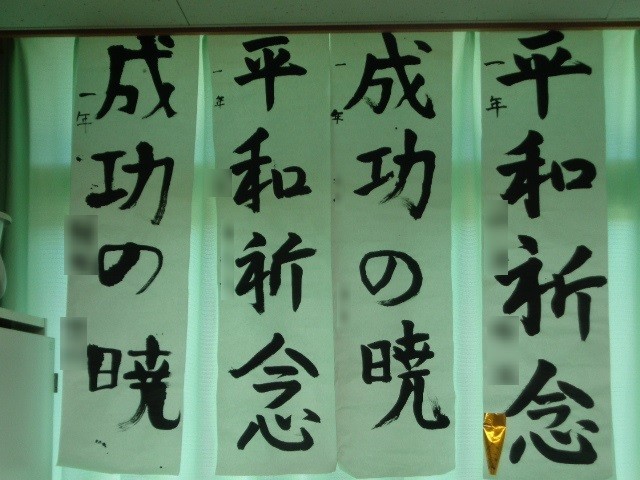 平和祈念
一年
成功の暁
一年
平和祈念
一年
成功の暁
一年